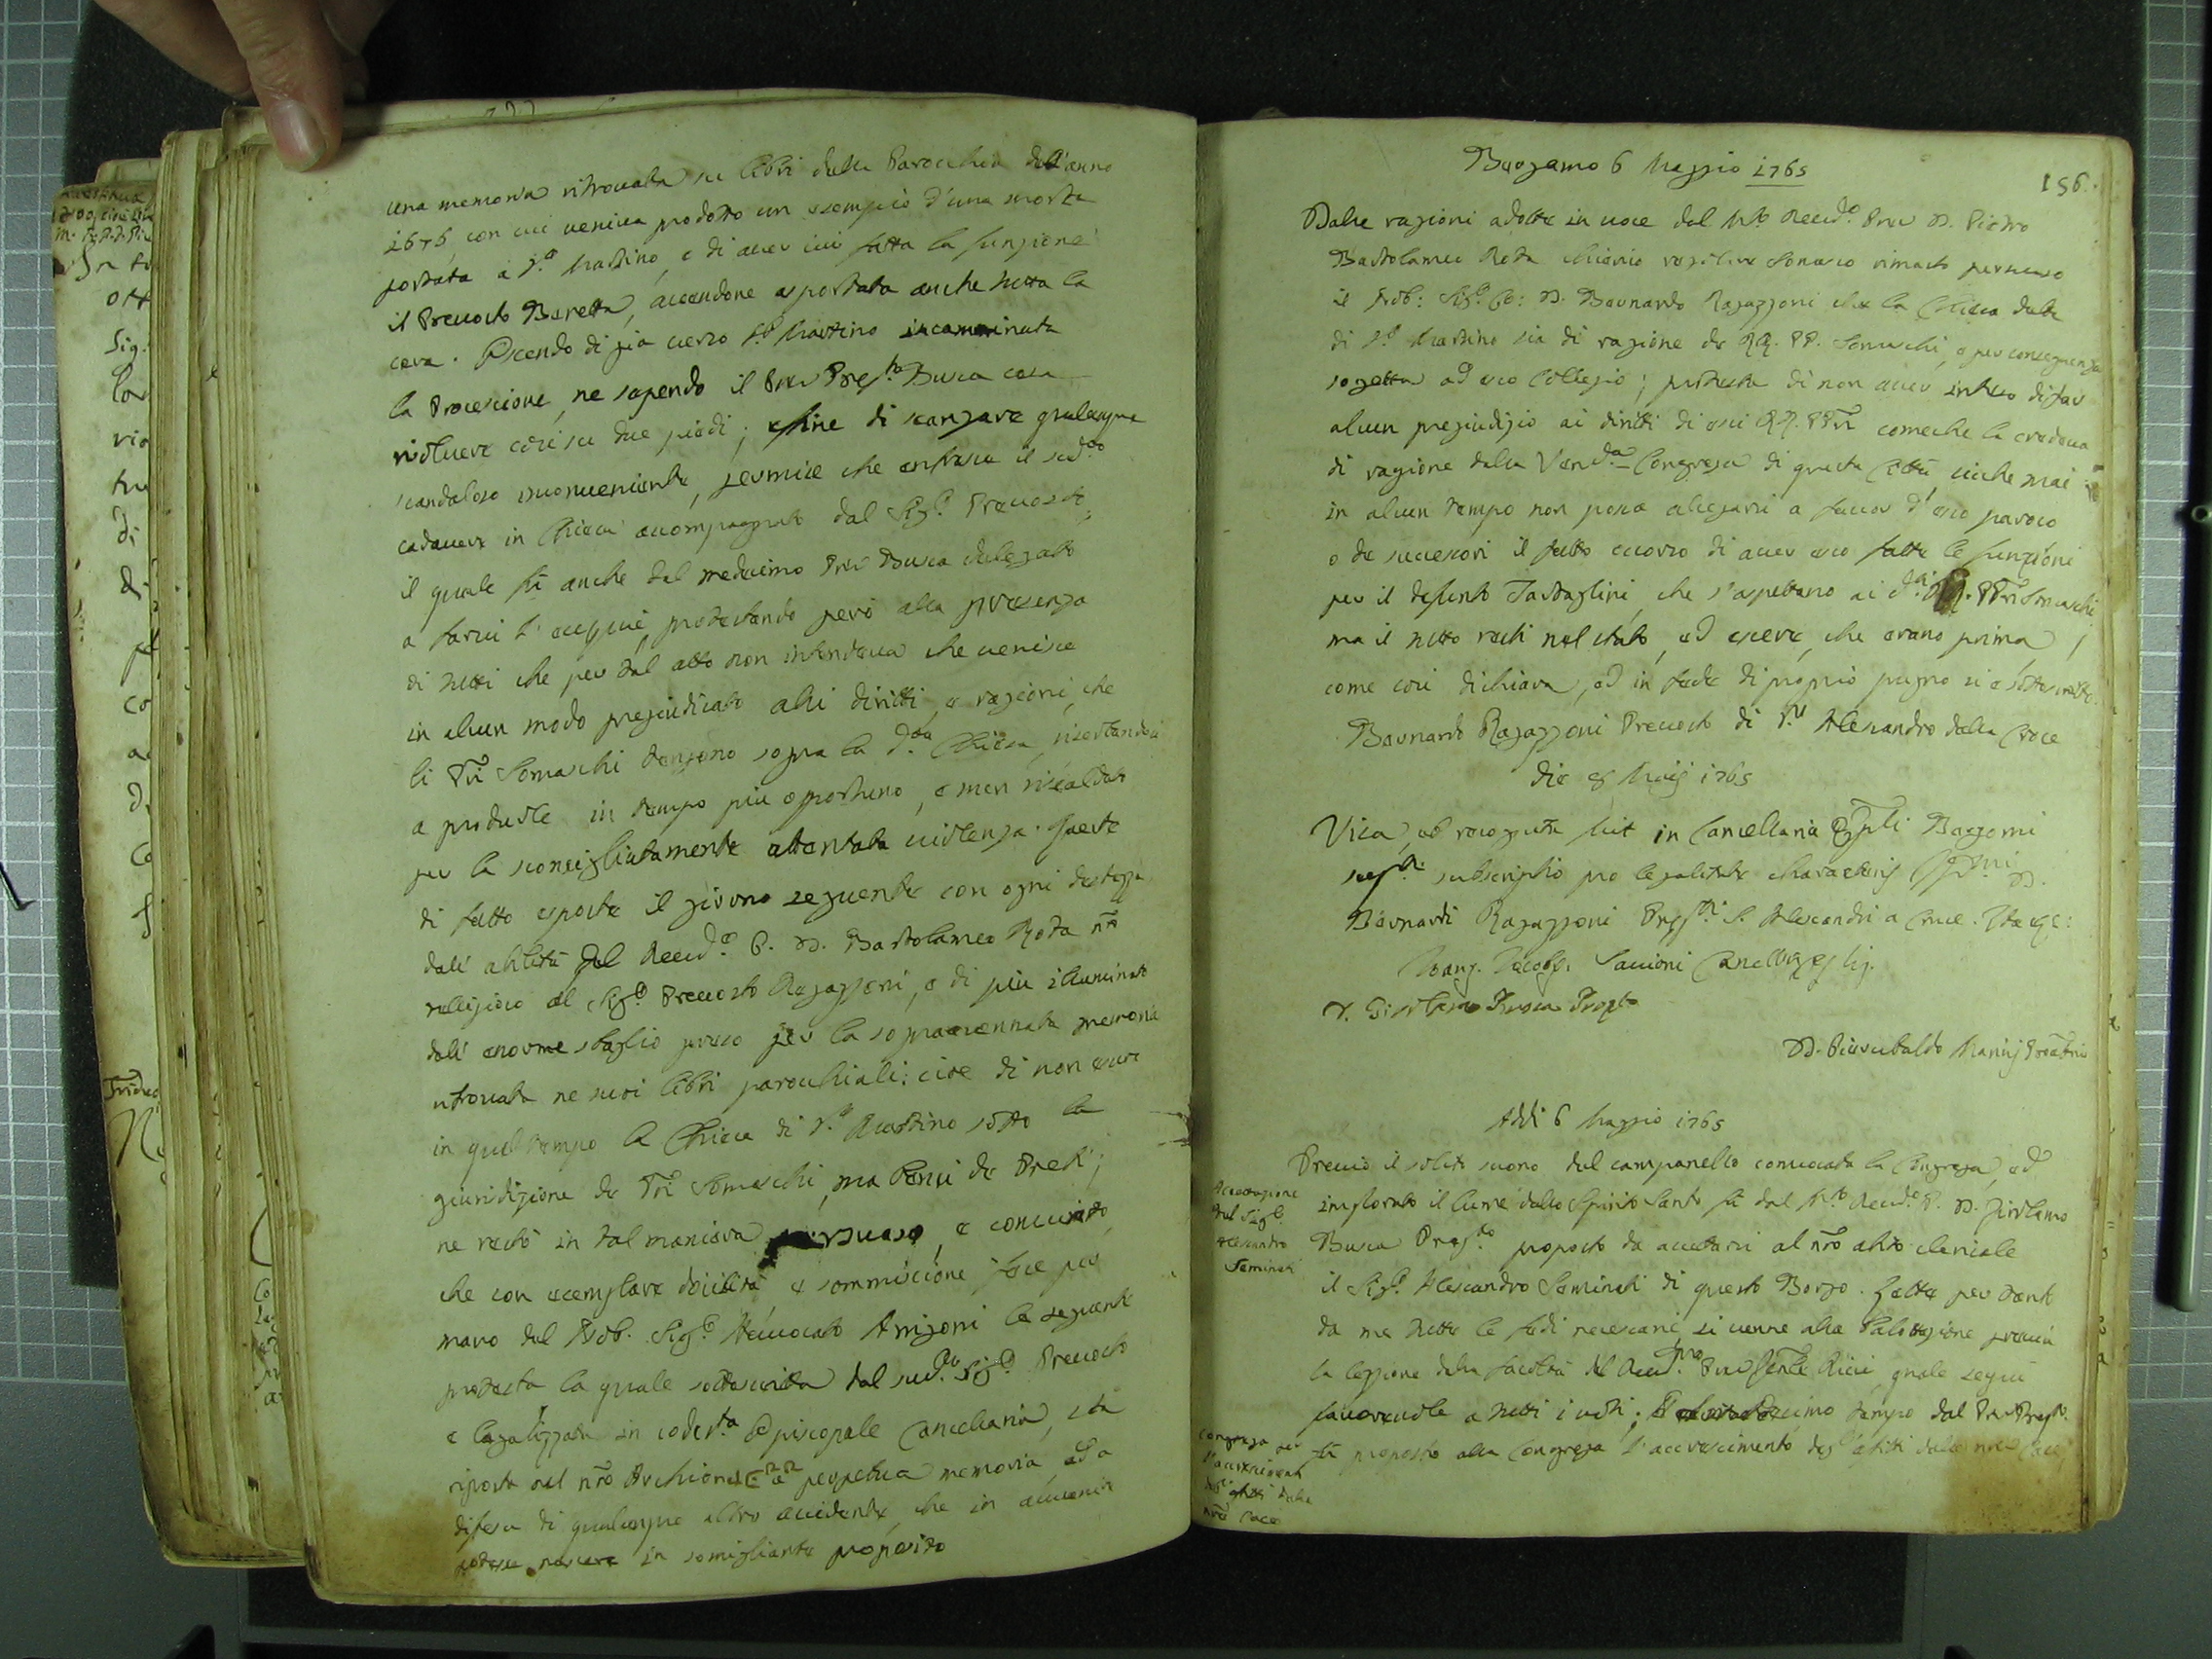 una memoria ritrovata su libri della Parochia dell'anno
1676, con cui veniva prodotto un esempio d'una morta
portata a S.to Martino, e di aver ivi fatta la funzione
il Prevosto Beretta, avendone asportata anche tutta la
cera. Essendo di già verso S.to Martino incaminata
la Processione, ne sapendo il Prev Prep.to Busca cosa
risolvere così su due piedi; affine di scanzare qualunque
scandaloso inconveniente, permise che entrasse il sud.to
cadavere in Chiesa accompagnato dal Sig.r Prevosto,
il quale fù anche dal medesimo Prev Busca delegato
a farvi l'esequie, protestando però alla presenza
di tutti che per tal atto non intendeva che venisse
in alcun modo pregiudicato alli diritti, e ragioni, che
li PP.ri Somaschi tengono sopra la d.ta Chiesa, riserbandosi
a produrle in tempo più opportuno, e men riscaldato
per la sconsigliatamente attentata violenza. Queste
di fatto esposte il giorno seguente con ogni destrezza
dall'abilità del Revd.o P. D. Bartolameo Rota nro
relligioso al Sig.r Prevosto Ragazzoni, e di più illuminato
dell'enorme sbaglio preso per la sopraccennata memoria
ritrovata ne suoi libri parochiali: cioè di non esser
in quel tempo la Chiesa di S.to Martino sotto la
giurisdizione de PP.ri Somaschi, ma bensì de Preti;
ne restò in tal maniera persuaso, e convinto,
che con esemplare docilità e sommissione fece per
mano del Nob. Sig.r Avvocato Arrigoni la seguente
protesta la quale sottoscritta dal sud.to Sig.r Prevosto
e legalizzata in codesta Episcopale Cancellaria, stà
riposta nel nro Archivio a perpetua memoria, ed a
difesa di qualunque altro accidente, che in avvenir
potesse nascere in somigliante proposito
156.
Bergamo 6 Maggio 1765
Dalle ragioni adotte in voce dal M.to Revd.o Prev D. Pietro
Bartolameo Rota Chierico regolare Somasco rimasto persuaso
il Nob: Sig.r Co: D. Bernardo Ragazzoni che la Chiesa detta
di S.to Martino sia di ragione de RR. PP. Somaschi, e per conseguenza
sogetta ad esso Collegio; protesta di non aver inteso di far
alcun pregiudizio ai diritti di essi RR. PPri comeche la credeva
di ragione della Vend.a Congrega di questa Città, siche mai
in alcun tempo non possa allegarsi a favor d'esso paroco
o de successori il fatto occorso di aver esso fatte le funzioni
per il defunto Tartaglini, che s'aspettano ai d.ti RR. PPri Somaschi,
ma il tutto resti nel stato, ed essere, che erano prima,
come così dichiara, ed in fede di proprio pugno si è sottoscritto.
Bernardo Ragazzoni Prevosto di S.to Alessandro della Croce
die 8 Maij 1765
Visa, et recognita fuit in Cancellaria Eppli Bergomi
subscriptio pro legalitate characteris D.
Bernardi Ragazzoni Prep.ti S. Alexandri a Cruce. Ita est:
D. Girolamo Busca Prep.to
Addi 6 Maggio 1765
Previo il solito suono del campanello convocata la Congrega, ed
implorato il lume dello Spirito Santo fù dal M.to Revd.o P. D. Girolamo
Busca Prep.to proposto da accettarsi al nro abito clericale
il Sig.r Alessandro Seminati di questo Borgo. Lette per tanto
da me tutte le fedi necessarie, si venne alla Balottazione previa
la lezzione della facoltà del Revd.mo Prev Genle Ricci, quale seguì
favorevole a tutti i voti; tempo dal Prev Prep.to
fù proposto alla Congrega l'accrescimento degl'affitti delle nre Case,
Accettazione
del Sig.r
Alessandro
Seminati
Congrega per
l'accrescimento
degl'affitti delle
nre Case